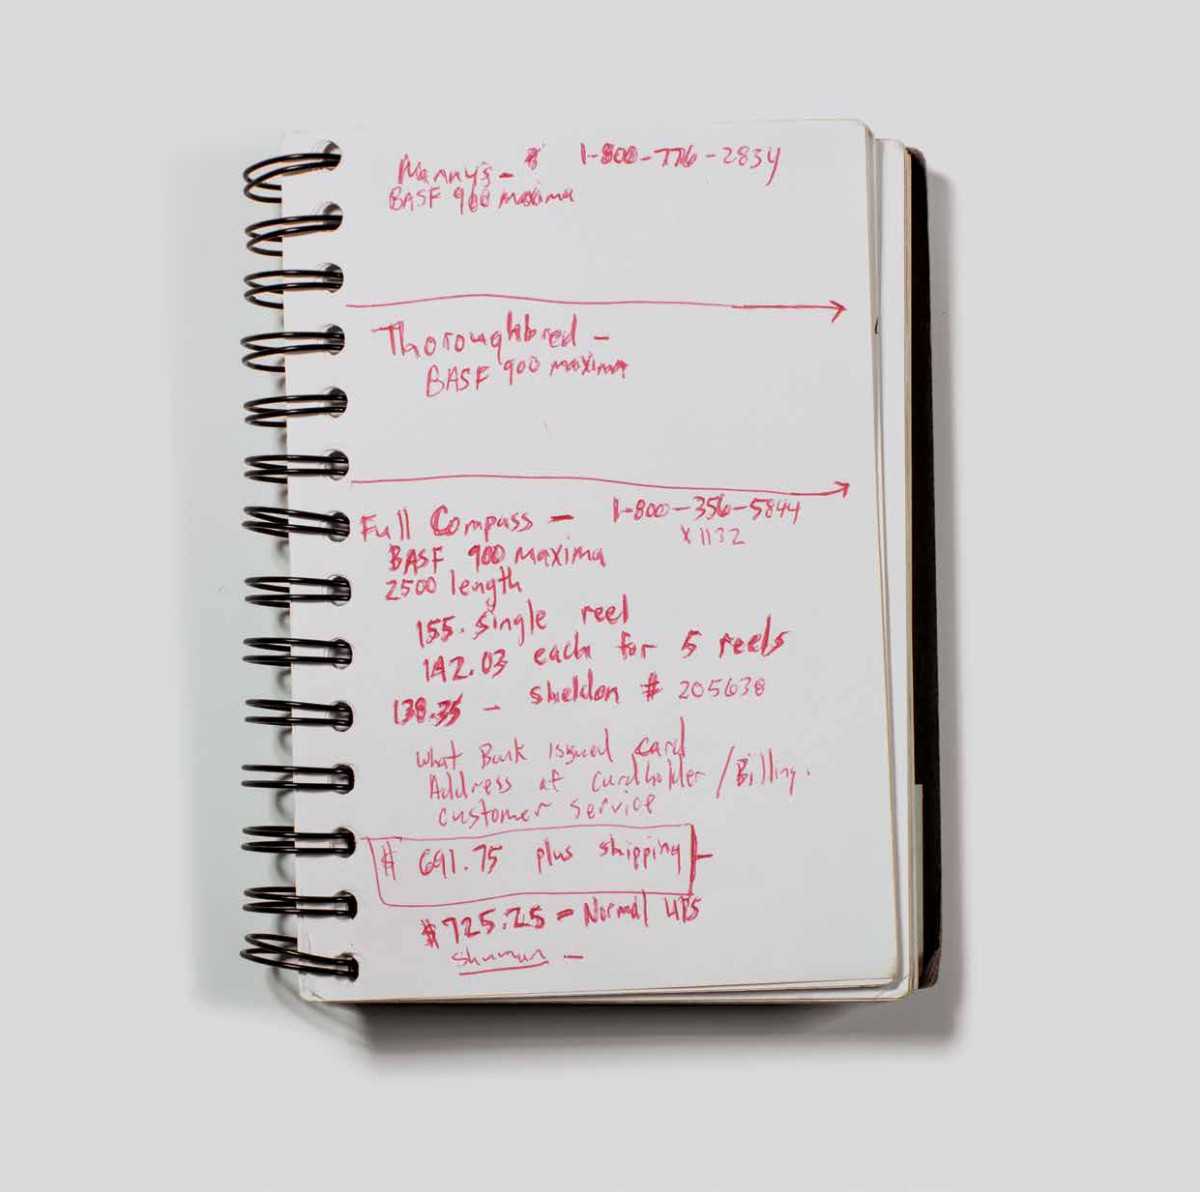 Manny's - $ 1-800-776-2834
BASF 900 maxima
Thoroughbred -
BASF 900 maxima
Full Compass - 1-800-356-5844
x1132
BASF 900 maxima
2500 length
155. single reel
142.03 each for 5 reels
138.35 - sheldon # 205638
What Bank issued card
Address at cardholder / Billing.
customer service
$ 691.75 plus shipping -
$725.25 - Normal UPS
Shuman -